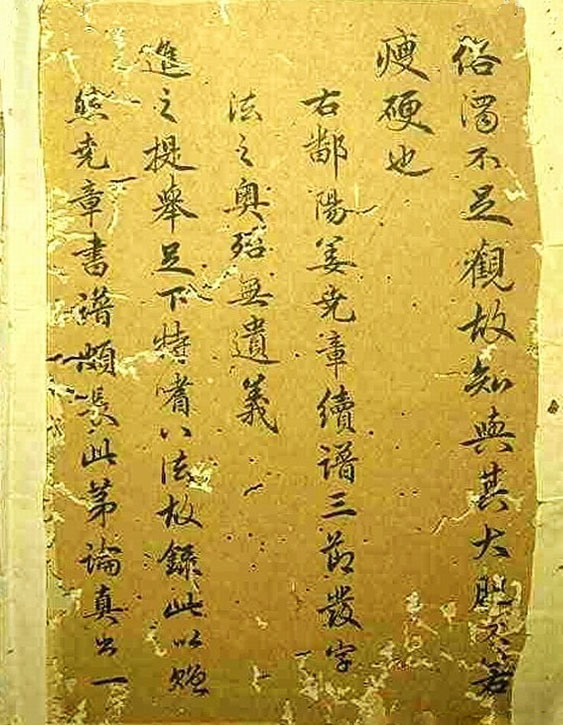 俗濁不足觀故知與其大肥不若
瘦硬也
右鄱陽姜堯章續譜三節發字
法之奧殆無遺義
進之提舉足下特嗜八法故錄此以贈
然堯章書譜頗長此第論真書一